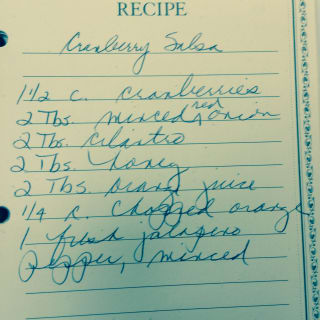 RECIPE
Cranberry Salsa
1 1/2 c. cranberries
2 Tbs. minced red onion
2 Tbs. cilantro
2 Tbs. honey
2 Tbs. orange juice
1/4 c. chopped orange
1 fresh jalapeno
pepper, minced